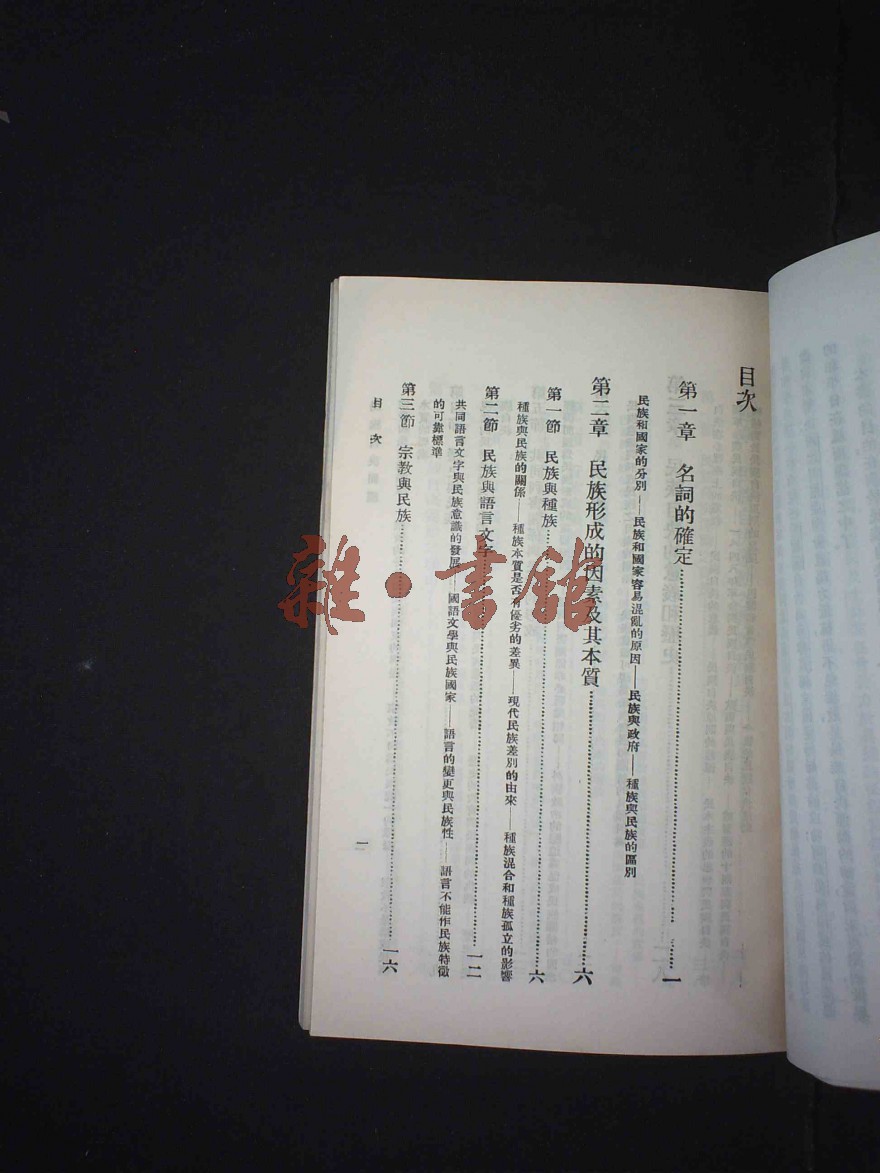 目次
第一章 名詞的確定⋯⋯⋯⋯⋯⋯⋯⋯一
民族和國家的分別——民族和國家容易混亂的原因——民族與政府——種族與民族的區別
第二章 民族形成的因素及其本質⋯⋯⋯⋯⋯⋯⋯⋯六
第一節 民族與種族⋯⋯⋯⋯⋯⋯⋯⋯六
種族與民族的關係——種族本質是否有優劣的差異——現代民族差別的由來——種族混合和種族孤立的影響
第二節 民族與語言文字⋯⋯⋯⋯⋯⋯⋯⋯一二
共同語言文字與民族意識的發展——國語文學與民族國家——語言的變更與民族性——語言不能作民族特徵
的可靠標準
第三節 宗教與民族⋯⋯⋯⋯⋯⋯⋯⋯一六
目次 一
雜·書館